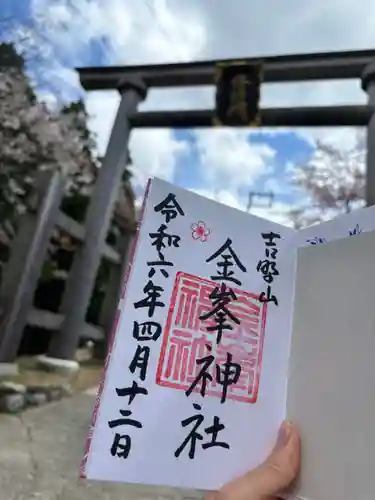 吉野山
金峯神社
令和六年四月十二日